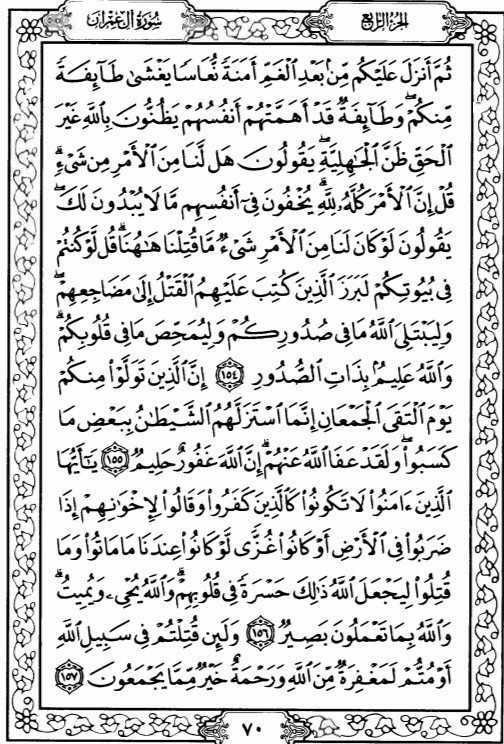 سُورَةُ آلِ عِمْرَان
الجُزْءُ الرَّابِعُ
ثُمَّ أَنزَلَ عَلَيْكُم مِّنۢ بَعْدِ ٱلْغَمِّ أَمَنَةً نُّعَاسًا يَغْشَىٰ طَآئِفَةً
مِّنكُمْ ۖ وَطَآئِفَةٌ قَدْ أَهَمَّتْهُمْ أَنفُسُهُمْ يَظُنُّونَ بِٱللَّهِ غَيْرَ
ٱلْحَقِّ ظَنَّ ٱلْجَـٰهِلِيَّةِ ۖ يَقُولُونَ هَل لَّنَا مِنَ ٱلْأَمْرِ مِن شَىْءٍ ۗ
قُلْ إِنَّ ٱلْأَمْرَ كُلَّهُۥ لِلَّهِ ۗ يُخْفُونَ فِىٓ أَنفُسِهِم مَّا لَا يُبْدُونَ لَكَ ۖ
يَقُولُونَ لَوْ كَانَ لَنَا مِنَ ٱلْأَمْرِ شَىْءٌ مَّا قُتِلْنَا هَـٰهُنَا ۗ قُل لَّوْ كُنتُمْ
فِى بُيُوتِكُمْ لَبَرَزَ ٱلَّذِينَ كُتِبَ عَلَيْهِمُ ٱلْقَتْلُ إِلَىٰ مَضَاجِعِهِمْ ۖ
وَلِيَبْتَلِىَ ٱللَّهُ مَا فِى صُدُورِكُمْ وَلِيُمَحِّصَ مَا فِى قُلُوبِكُمْ ۗ
وَٱللَّهُ عَلِيمٌۢ بِذَاتِ ٱلصُّدُورِ ١٥٤ إِنَّ ٱلَّذِينَ تَوَلَّوْا۟ مِنكُمْ
يَوْمَ ٱلْتَقَى ٱلْجَمْعَانِ إِنَّمَا ٱسْتَزَلَّهُمُ ٱلشَّيْطَـٰنُ بِبَعْضِ مَا
كَسَبُوا۟ ۖ وَلَقَدْ عَفَا ٱللَّهُ عَنْهُمْ ۗ إِنَّ ٱللَّهَ غَفُورٌ حَلِيمٌ ١٥٥ يَـٰٓأَيُّهَا
ٱلَّذِينَ ءَامَنُوا۟ لَا تَكُونُوا۟ كَٱلَّذِينَ كَفَرُوا۟ وَقَالُوا۟ لِإِخْوَٰنِهِمْ إِذَا
ضَرَبُوا۟ فِى ٱلْأَرْضِ أَوْ كَانُوا۟ غُزًّى لَّوْ كَانُوا۟ عِندَنَا مَا مَاتُوا۟ وَمَا
قُتِلُوا۟ لِيَجْعَلَ ٱللَّهُ ذَٰلِكَ حَسْرَةً فِى قُلُوبِهِمْ ۗ وَٱللَّهُ يُحْىِۦ وَيُمِيتُ ۗ
وَٱللَّهُ بِمَا تَعْمَلُونَ بَصِيرٌ ١٥٦ وَلَئِن قُتِلْتُمْ فِى سَبِيلِ ٱللَّهِ
أَوْ مُتُّمْ لَمَغْفِرَةٌ مِّنَ ٱللَّهِ وَرَحْمَةٌ خَيْرٌ مِّمَّا يَجْمَعُونَ ١٥٧
٧٠